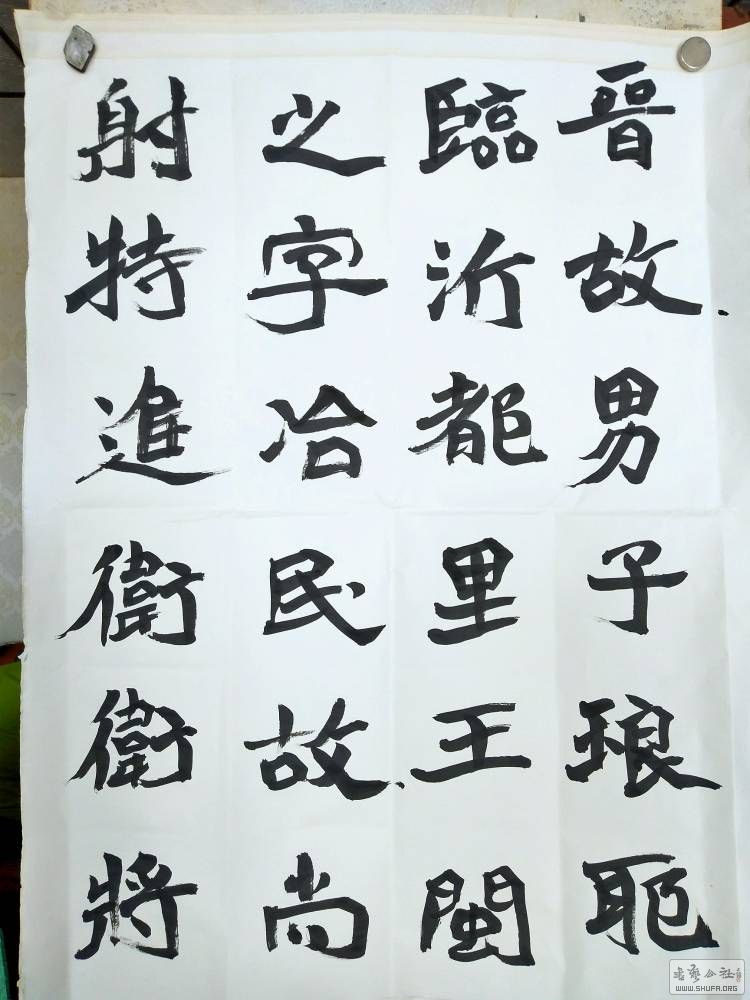 晉故男子琅耶
臨沂都里王閩
之字冶民故尚
射特進衛衛將
WWW.SHUFA.ORG